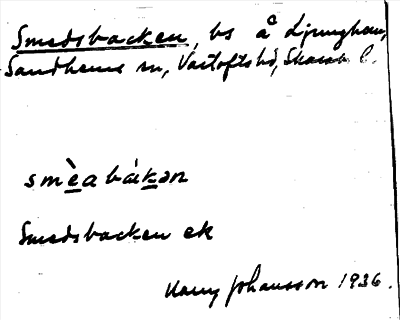 Smedsbacken, bs å Ljunghem,
Sandhems sn, Vartofts hd, Skarab. l.
smèabákən
Smedsbacken ek
Harry Johansson 1936.